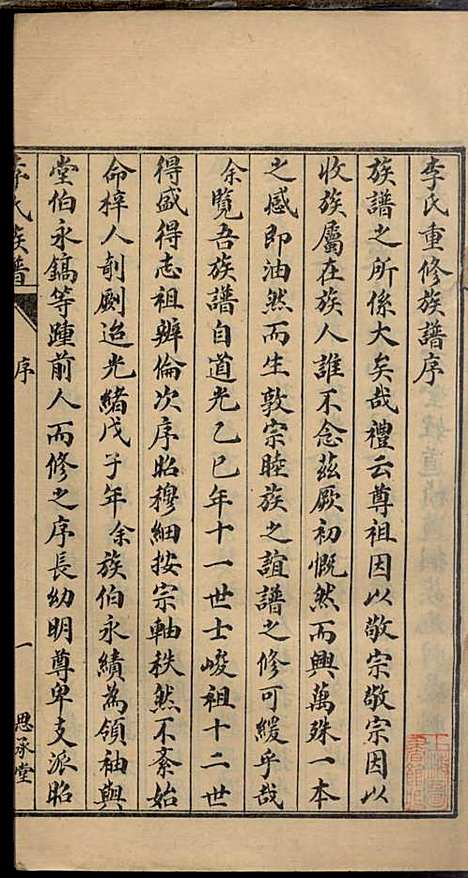 李氏重修族譜序
族譜之所係大矣哉禮云尊祖因以敬宗敬宗因以
收族屬在族人誰不念茲厥初慨然而興萬殊一本
之感即油然而生敦宗睦族之誼譜之修可緩乎哉
余覽吾族譜自道光乙巳年十一世士峻祖十二世
得盛得志祖辨倫次序昭穆細按宗軸秩然不紊始
命梓人剞劂迨光緒戊子年余族伯永績為領袖與
堂伯永鎬等踵前人而修之序長幼明尊卑支派昭
李氏族譜
序
一
思承堂
上海圖書館藏